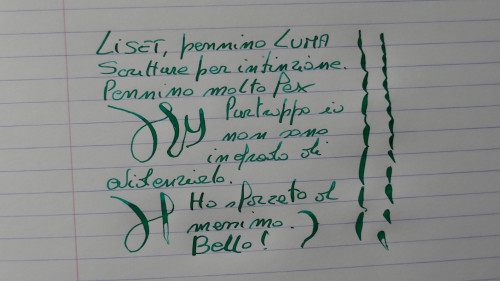 LiSET, pennino LUMA
Scritture per intinzione.
Pennino molto flex
Purtroppo io
non sono
in grado di
evidenziarlo.
Ho sforzato al
massimo.
Bello!